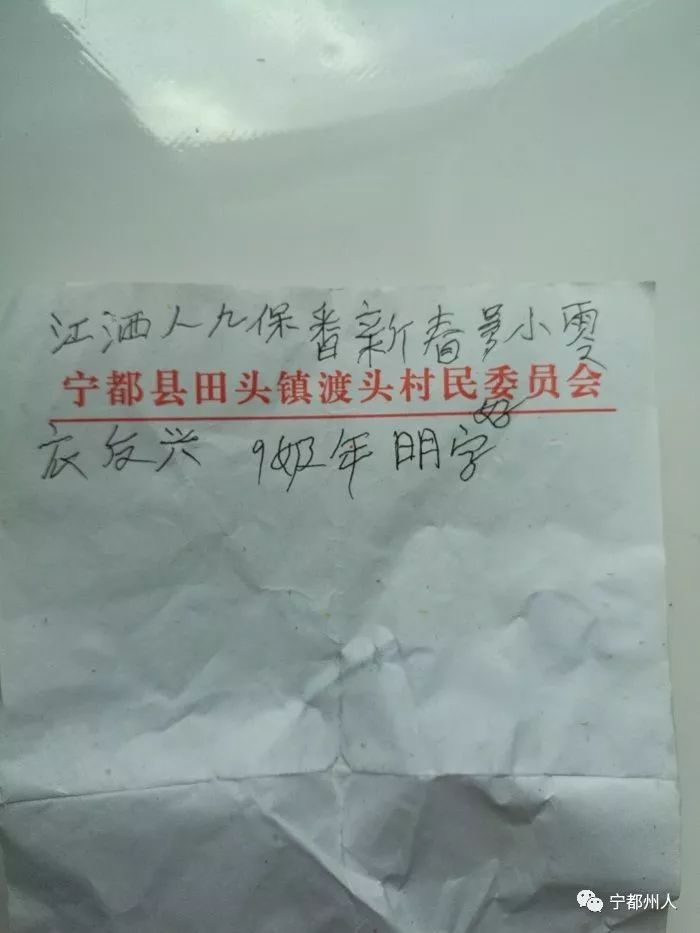 江洒人九保香新春号小雯
宁都县田头镇渡头村民委员会
好
衣反兴 9奶年 明字
宁都州人